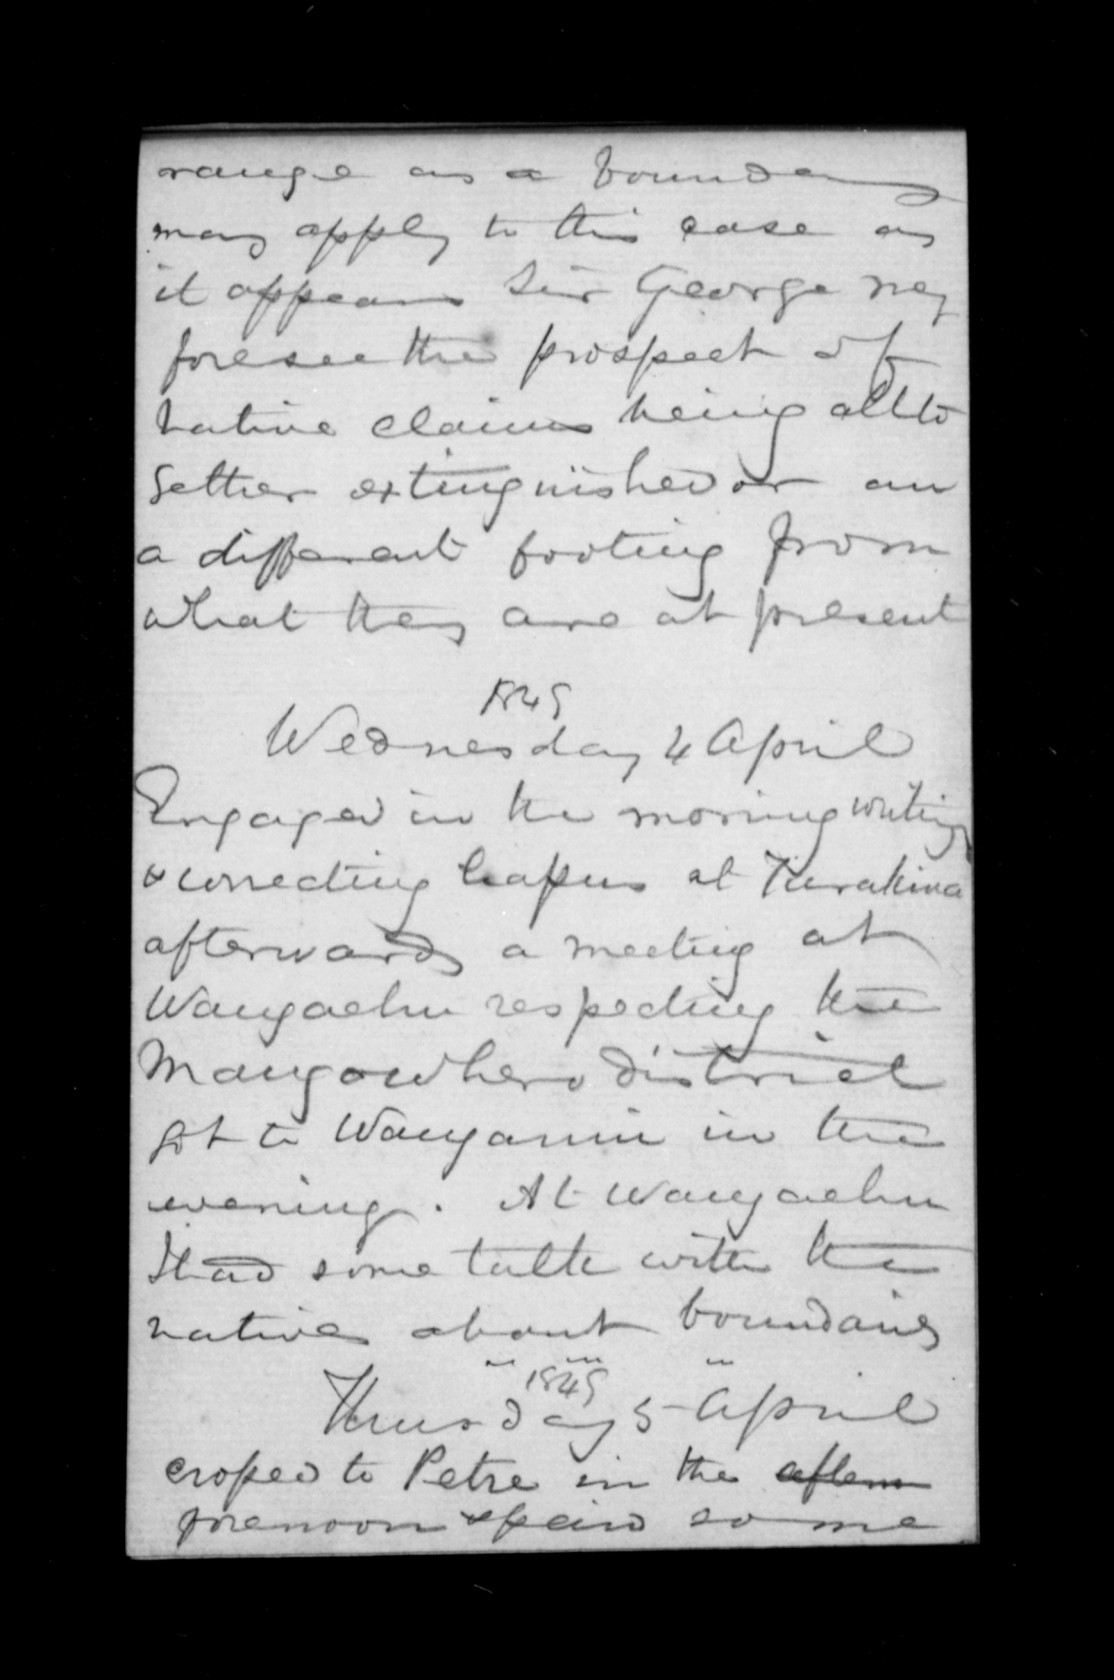 range as a boundary
may apply to this case as
it appears Sir George may
foresee the prospect of
native claims being alto
gether extinguished or on
a different footing from
what they are at present
1849
Wednesday 4 April
Engaged in the morning writing
& correcting papers at Turakina
afterwards a meeting at
Wangaehu respecting the
Mangowhero district
got to Wanganui in the
evening. At Wangaehu
I had some talk with the
natives about boundaries
1849
Thursday 5 April
crossed to Petre in the aftern
forenoon & paid some